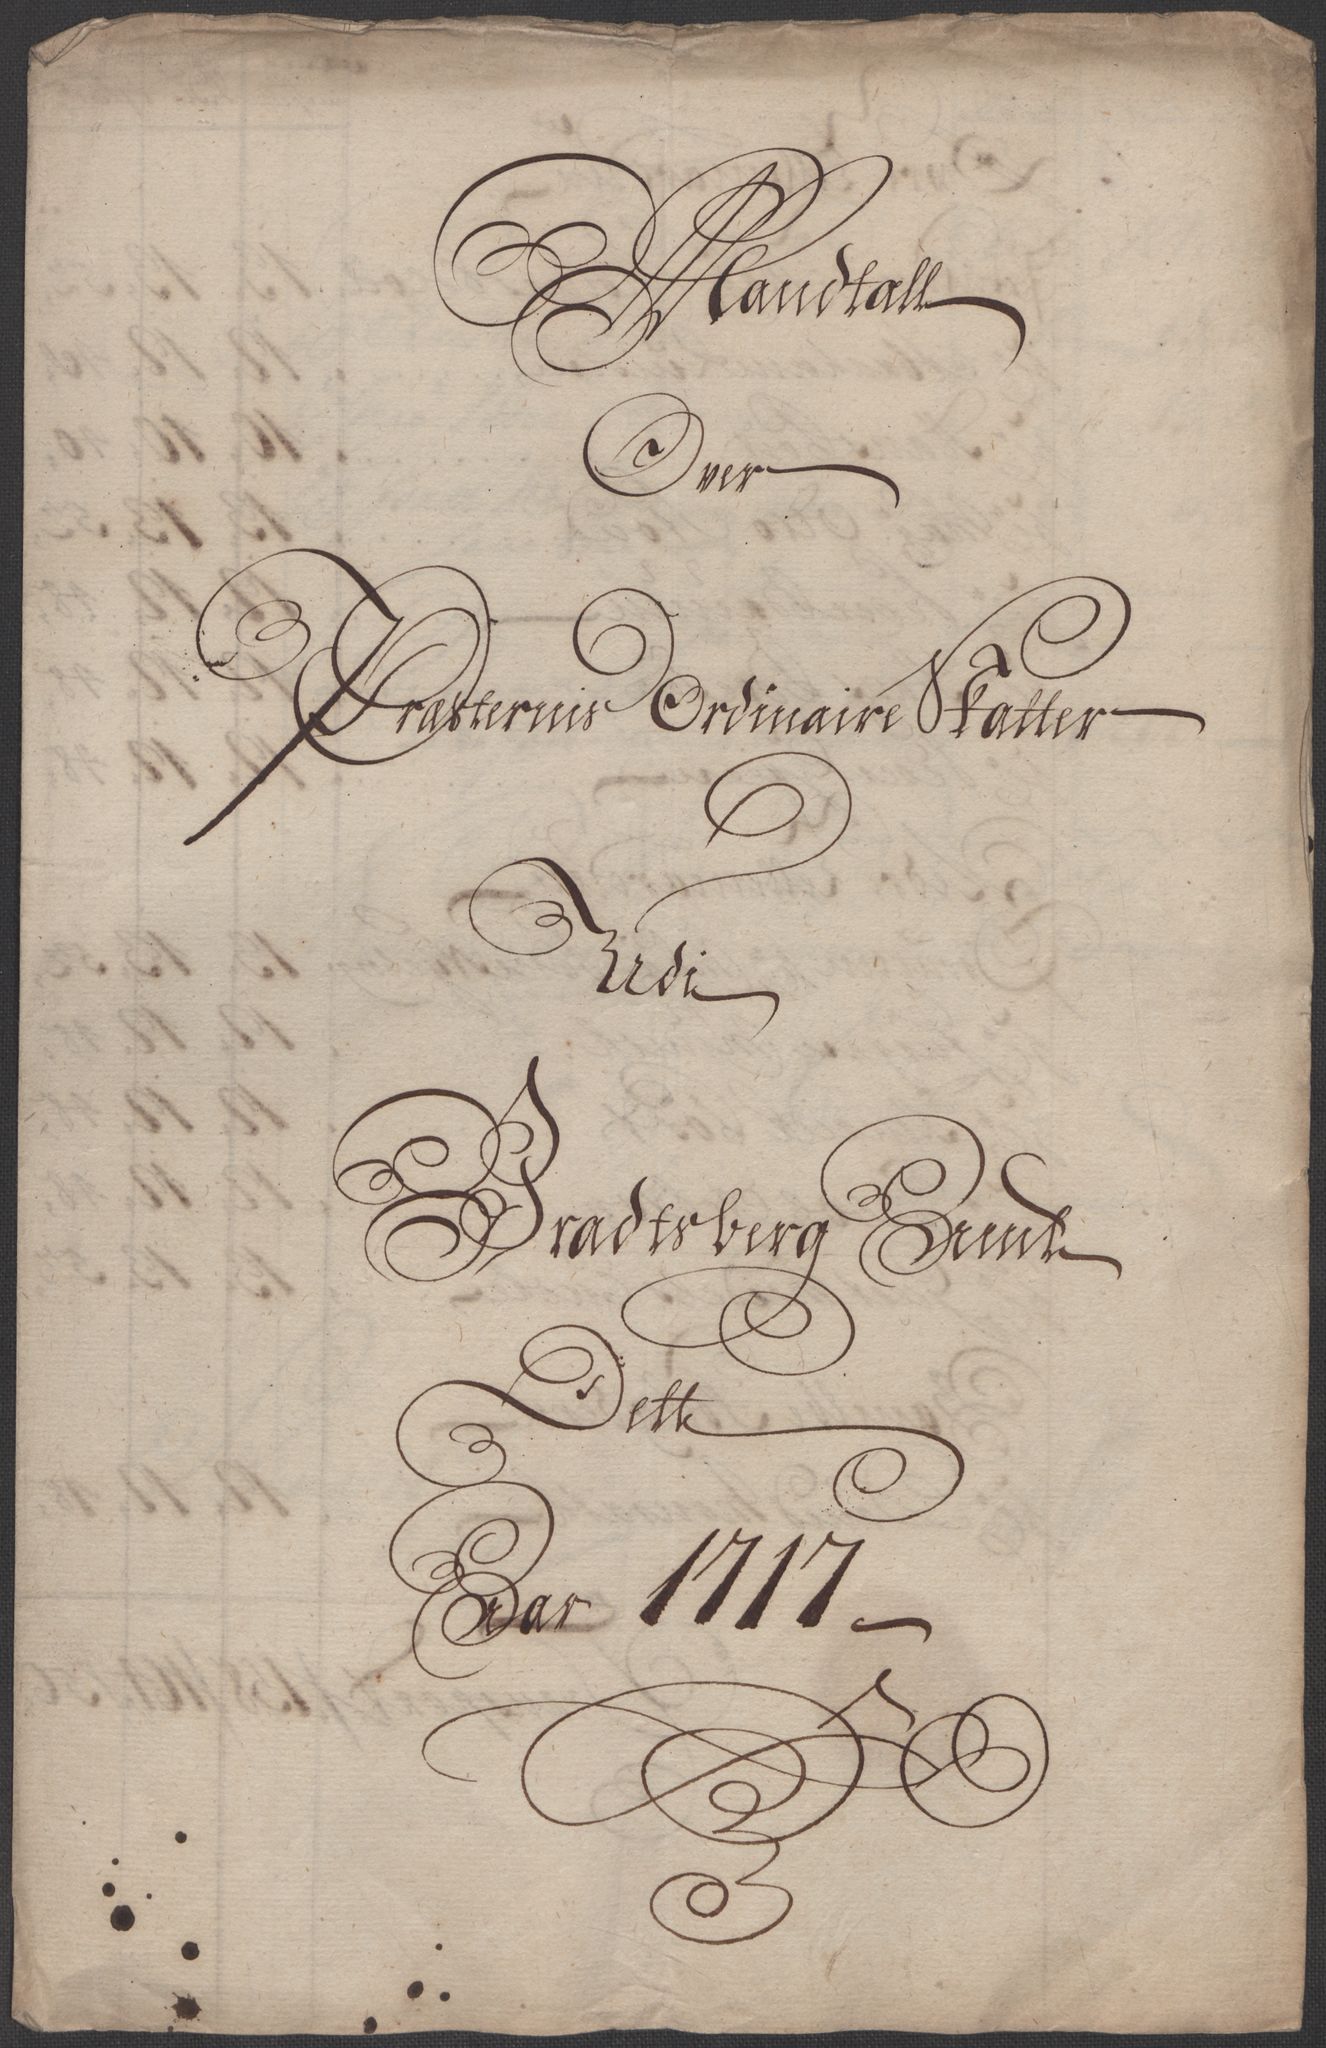 Mandtall
Over
Præsternis Ordinaire Skatter
Udi
Bradtsberg Ambt
Dett
Aar 1717